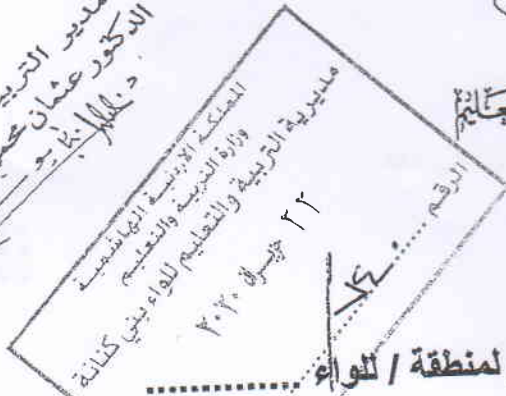 مدير التربية
الدكتور عثمان
المملكة الاردنية الهاشمية
وزارة التربية والتعليم
مديرية التربية والتعليم للواء بني كنانة
٢٢ حزيران ٢٠٢٠
الرقم
لمنطقة / للواء